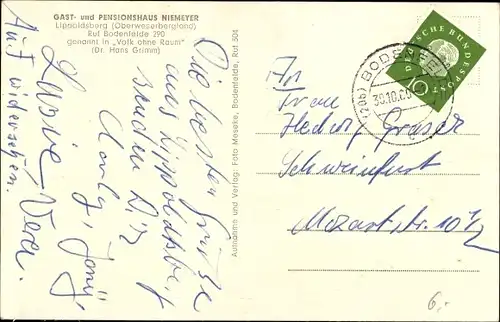 GAST- und PENSIONSHAUS NIEMEYER
Lippoldsberg (Oberweserbergland)
Ruf Bodenfelde 290
genannt in „Volk ohne Raum"
(Dr. Hans Grimm)
Die besten Grüße
aus Lippoldsberg
senden Dir
Luzie, Vera.
Auf wiedersehen.
Aufnahme und Verlag: Foto Meseke, Bodenfelde, Ruf 504
DEUTSCHE BUNDESPOST
10
(20b) BODENFELDE
An
Frau
Hedwig Graser
Schweinfurt
Mozartstr. 10½
6,-